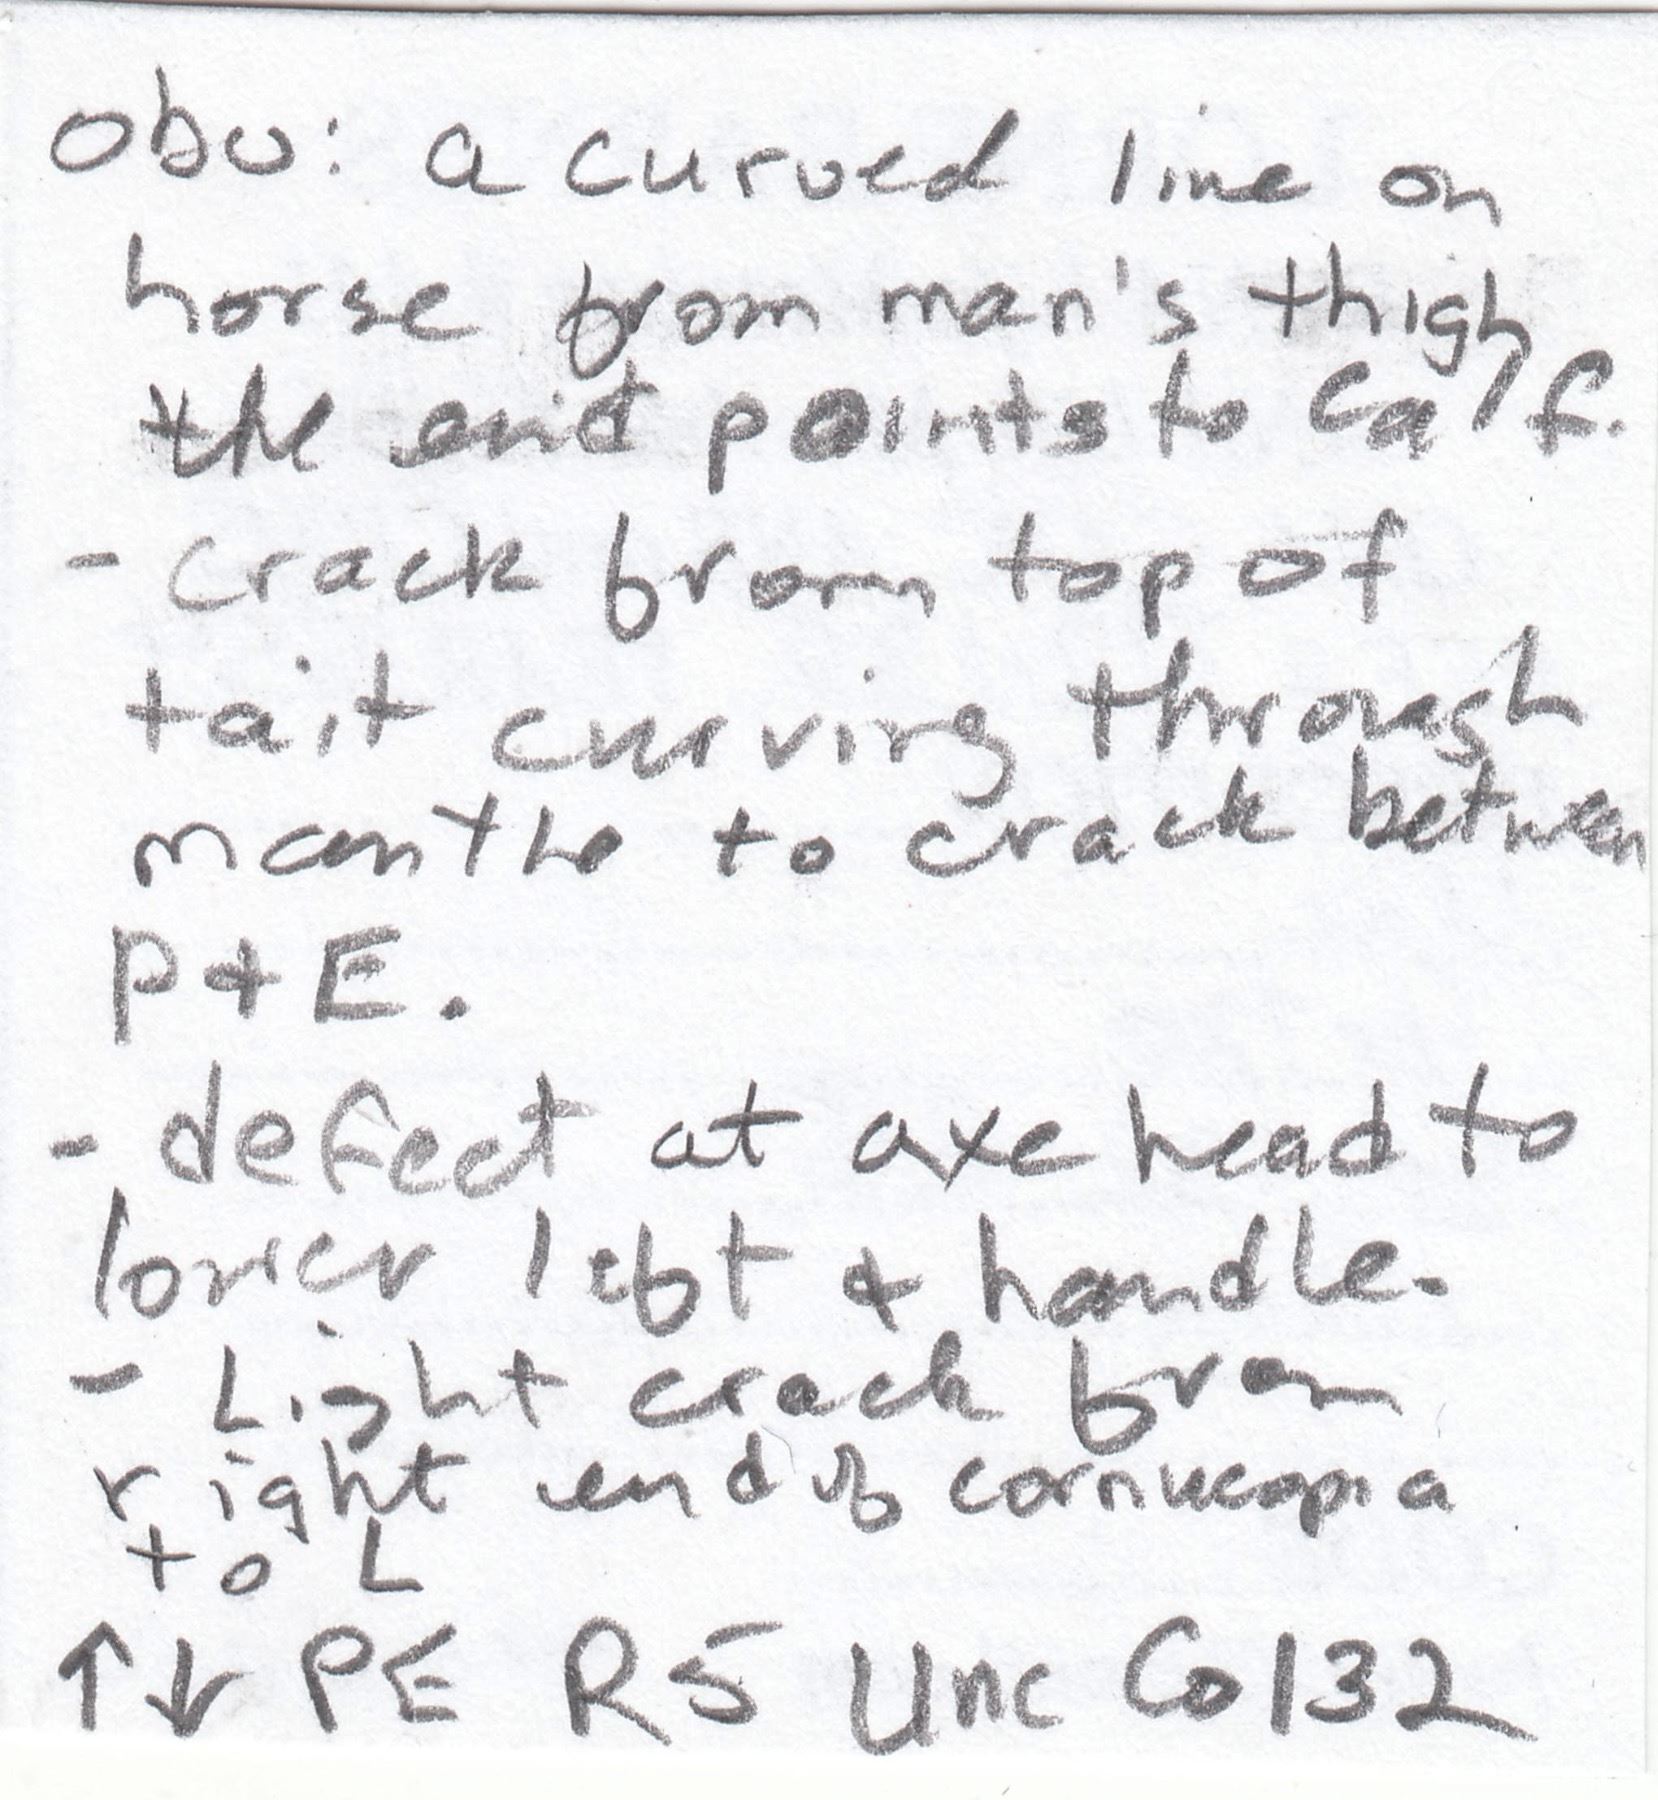 Obv: a curved line on
horse from man's thigh
the end points to Calf.
- crack from top of
tait curving through
manthe to crack between
P + E.
- defect at axe head to
lower left & handle.
- Light crack from
right end of cornucopia
to L
↑↓ PE R5 Unc Co132